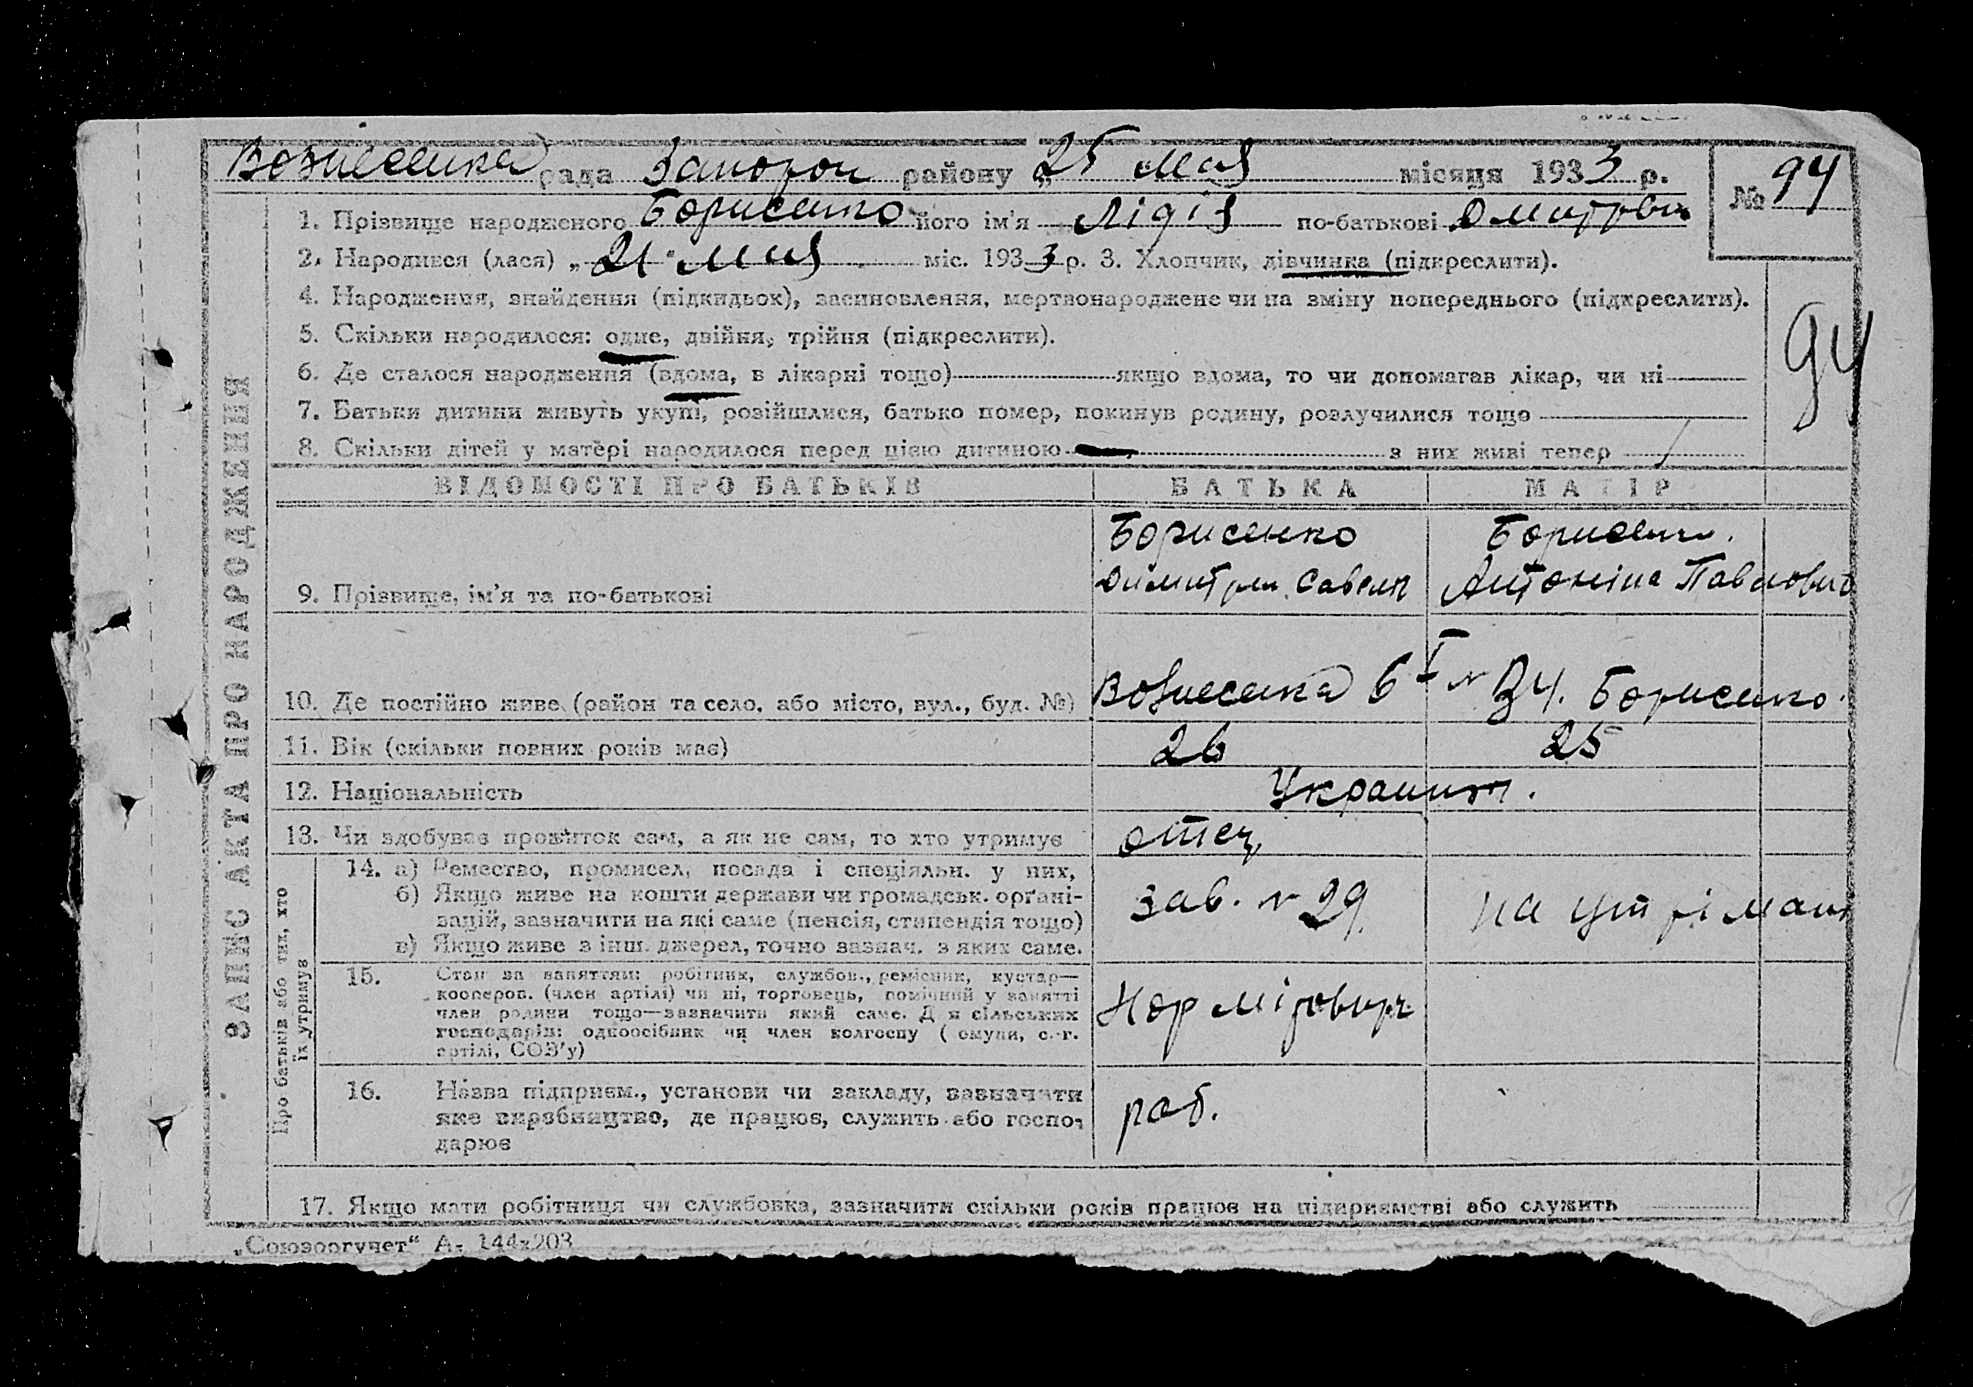 Вознесенка рада Запорож району „25 Мая місяця 1933 р. № 94
1. Прізвище народженого Борисенко його ім'я Лідія по-батькові Дмитровн
2. Народився (лася) „21" Мая міс. 1933 р. 3. Хлопчик, дівчинка (підкреслити).
4. Народження, знайдення (підкидьок), засиновлення, мертвонароджене чи на зміну попереднього (підкреслити).
94
5. Скільки народилося: одне, двійня, трійня (підкреслити).
6. Де сталося народження (вдома, в лікарні тощо) якщо вдома, то чи допомагав лікар, чи ні
7. Батьки дитини живуть укупі, розійшлися, батько помер, покинув родину, розлучилися тощо
8. Скільки дітей у матері народилося перед цією дитиною з них живі тепер
ВІДОМОСТІ ПРО БАТЬКІВ БАТЬКА МАТІР
Борисенко
9. Прізвище, ім'я та по-батькові Антоніна Павловна
10. Де постійно живе (район та село, або місто, вул., буд. №) Вознесенка 6 Борисенко.
11. Вік (скільки повних років має) 26 25
12. Національність
13. Чи здобуває прожиток сам, а як не сам, то хто утримує отец
ЗАПИС АКТА ПРО НАРОДЖЕННЯ
Про батьків або тих, хто
їх утримує
14. а) Ремество, промисел, посада і спеціяльн. у них,
б) Якщо живе на кошти держави чи громадськ. орґані-
зацій, зазначити на які саме (пенсія, стипендія тощо)
в) Якщо живе з інш. джерел, точно зазнач. з яких саме.
зав. № 29
15. Стан за заняттям: робітник, службов., ремісник, кустар—
кооперов. (член артілі) чи ні, торговець, помічний у занятті
член родини тощо—зазначити який саме. Для сільських
господарів: одноосібник чи член колгоспу (комуни, с.-г.
артілі, СОЗ'у)
16. Назва підприєм., установи чи закладу, зазначити
яке виробництво, де працює, служить або госпо-
дарює
раб.
17. Якщо мати робітниця чи службовка, зазначити скільки років працює на підприємстві або служить
„Союзоргучет" А- 144×203